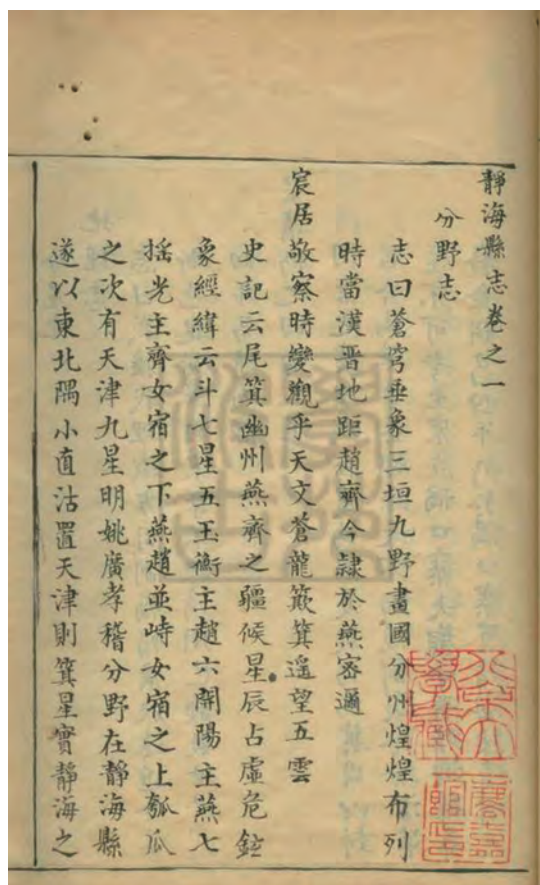 靜海縣志卷之一
分野志
志曰蒼穹垂象三垣九野畫國分州煌煌布列
時當漢晋地距趙齊今隷於燕宻邇
宸居敬察時變觀乎天文蒼龍簸箕遥望五雲
史記云尾箕幽州燕齊之疆候星辰占虛危
象經緯云斗七星五玉衡主趙六開陽主燕七
揺光主齊女宿之下燕趙並峙女宿之上瓠瓜
之次有天津九星明姚廣孝稽分野在靜海縣
遂以東北隅小直沽置天津則箕星實靜海之